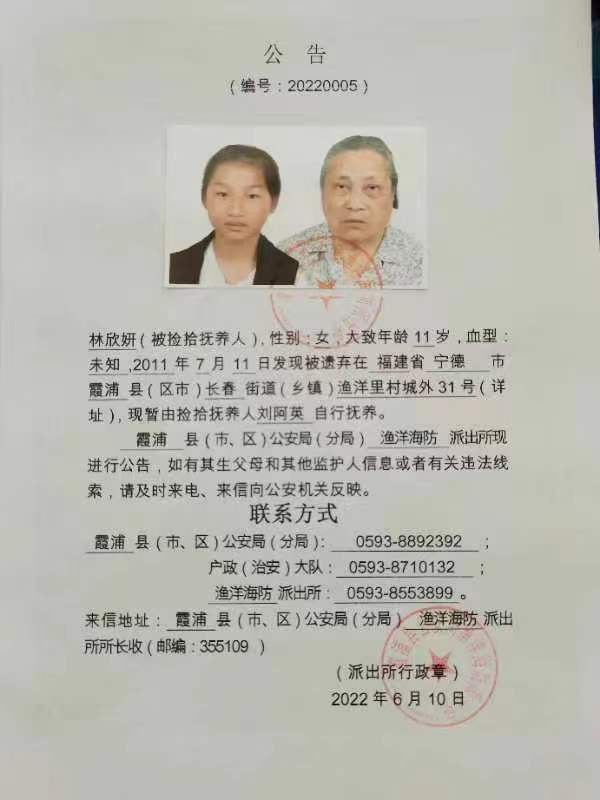 公 告
（编号：20220005）
林欣妍（被捡拾抚养人），性别：女，大致年龄 11 岁，血型：
未知 ,2011 年 7 月 11 日发现被遗弃在 福建省 宁德 市
霞浦 县（区市）长春 街道（乡镇）渔洋里村城外 31 号（详
址），现暂由捡拾抚养人刘阿英 自行抚养。
霞浦 县（市、区）公安局（分局） 渔洋海防 派出所现
进行公告，如有其生父母和其他监护人信息或者有关违法线
索，请及时来电、来信向公安机关反映。
联系方式
霞浦 县（市、区）公安局（分局）： 0593-8892392 ；
户政（治安）大队： 0593-8710132 ；
渔洋海防 派出所： 0593-8553899 。
来信地址： 霞浦 县（市、区）公安局（分局） 渔洋海防 派出
所所长收（邮编：355109 ）
（派出所行政章）
2022 年 6 月 10 日